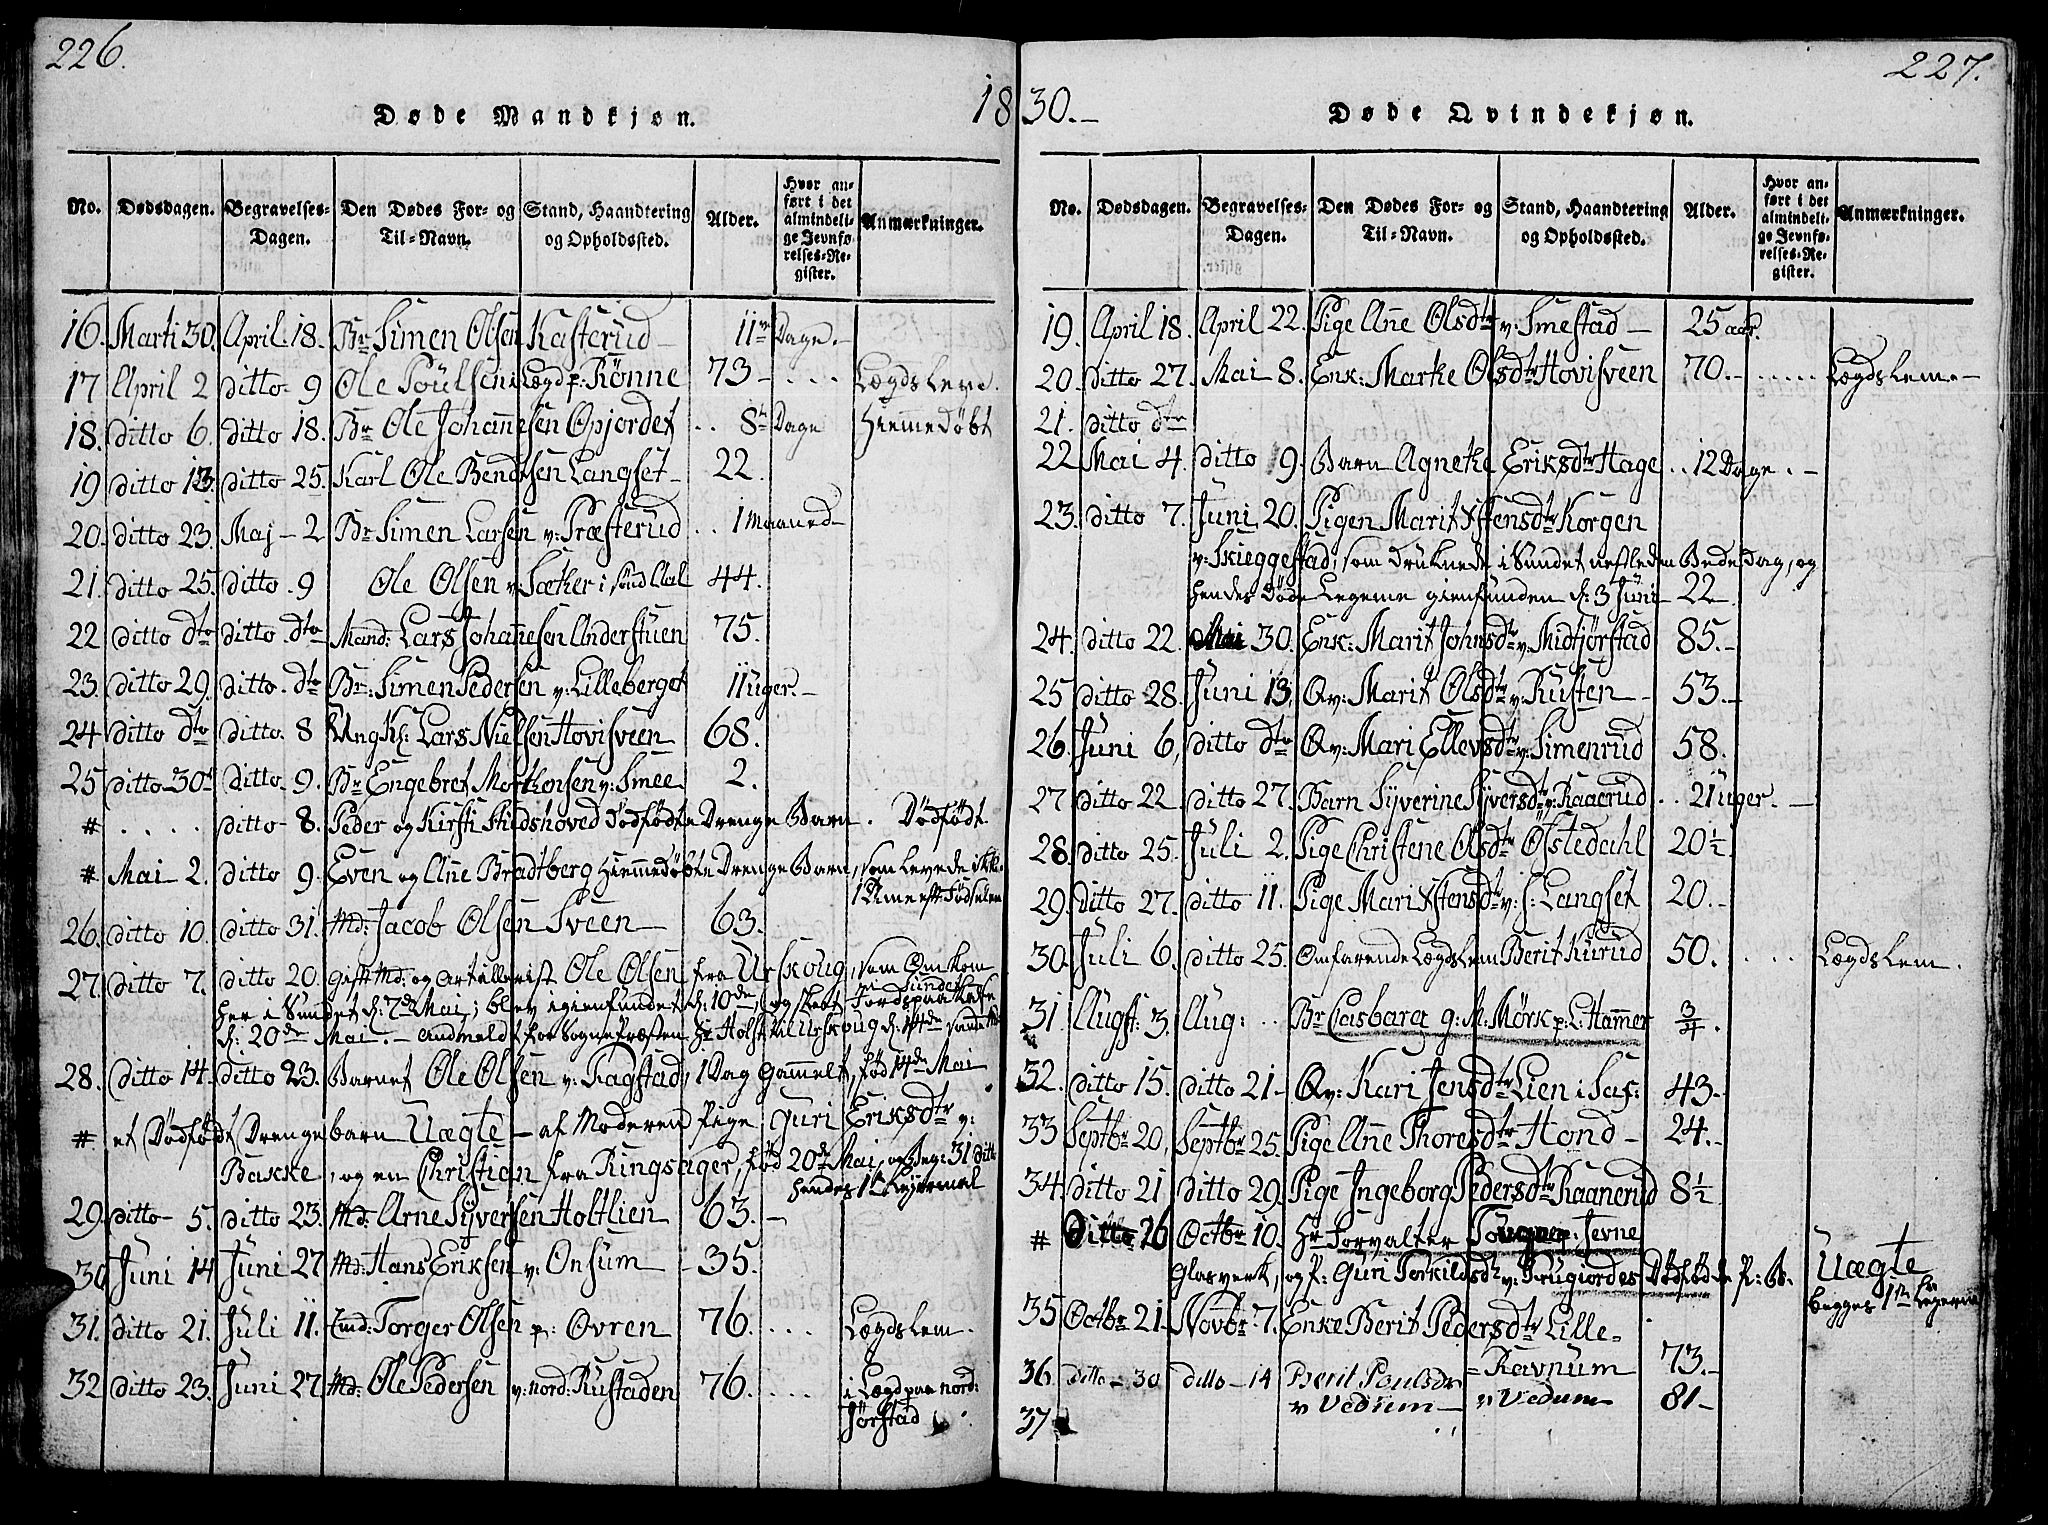 226.
1830.-
227.
Døde Mandkjøn.
No. Dødsdagen. Begravelses-Dagen. Den Dødes For- og Til-Navn. Stand, Haandtering og Opholdssted. Alder. Hvor anført i det almindelige Jevnførelses-Register. Anmærkninger.
16. Marti 30. April. 18. Br Simen Olsen Kasterud - 11 Dage.-
17 April 2 ditto - 9 Ole Poülsen i Lægd p: Rönne 73 - .... Lægdsleve.
18. ditto 6. ditto 18. Br Ole Johannesen Opjordet .. 8 Dage Hiemmedöbt
19 ditto 13. ditto 25. Karl Ole Bendsen Langset - 22.
20. ditto 23. Maj - 2 Br Simen Larsen v: Præsterud .. 1 Maaned -
21. ditto 25. ditto - 9 Ole Olsen v Sæther i sönd Aal 44.
22 ditto dto ditto dto Mand: Lars Johannesen Understuen 75.
23. ditto 29. ditto - dto Br: Simen Pedersen v: Lilleberget 11 Uger. -
24 ditto dto ditto - 8 Ung K: Lars Nielsen Hovisveen 68.
25 ditto 30 ditto - 9. Br Engebret Morthensen v: Smee 2.
# .... ditto - 8. Peder og Kirsti Stiedshoved Dødfødte Drenge Barn . Dødfødt
# Mai 2. ditto 9. Even og Anne Bradtberg Hiemmedöbte Drenge Barn, som levede ikke
1 Time eft: Födselen
26. ditto 10. ditto 31. Md: Jacob Olsen Sveen 63.
27. ditto 7. ditto 20. Gift Md: og Artillerist Ole Olsen fra Urskoug, som Omkom
her i Sundet d: 7de Mai; blev igienfundet d: 10de, og skeet Jordspaakastelse
d: 20de Mai. - Anmeldt for Sognepræsten Hr Holst til Urskoug d: 14de samme
28. ditto 14. ditto 23. Barnet Ole Olsen v: Ragstad, 1 Dag Gammelt, fød 14de Mai
# et Dödfödt Drengebarn Uægte - af Moderen Pige Guri Eriksdtr v:
Bakke, og en Christian fra Ringsager, fød 20de Mai, og Beg: 31 ditto
hendes 1 Leyermaal
29. ditto - 5. ditto 23. Md: Arne Syversen Holtlien 63. -
30 Juni 14 Juni 27 Md: Hans Eriksen v: Onsum - 35.
31. ditto 21. Juli 11. Emd: Torger Olsen p: Övren 76. ... Lægdslem.
32 ditto 23. Juni 27 Md: Ole Pedersen v: nord: Rustaden 76. ... i Lægd paa nord:
Jörstad
Døde Qvindekjøn.
No. Dødsdagen. Begravelses-Dagen. Den Dødes For- og Til-Navn. Stand, Haandtering og Opholdssted. Alder. Hvor anført i det almindelige Jevnførelses-Register. Anmærkninger.
19. April 18. April 22. Pige Anne Olsdtr v: Smestad - 25 aar.
20. ditto 27. Mai - 8. Enk: Marthe Olsdtr Hovisveen 70. - ..... Lægdslem. -
21. ditto dto
22 Mai 4. ditto 9. Barn Agnethe Eriksdtr Hage .. 12 Dage . -
23. ditto 7. Juni 20. Pigen Marit Stensdtr Korgen
v: Skieggestad, som druknede i Sundet aftleden Bededag, og
hendes döde Legeme gienfunden d: 3 Juni 22
24. ditto 22. Mai 30. Enk: Marit Johnsdtr v: Midtjörstad 85. -
25 ditto 28. Juni 13. Qv: Marit Olsdtr v: Rusten - 53. -
26. Juni 6, ditto dto Qv: Mari Ellevsdtr v: Simenrud 58.
27 ditto 22 ditto 27. Barn Syverine Syversdtr v: Raaerud .. 21 Uger. -
28. ditto 25. Juli 2. Pige Christene Olsdtr Östedahl 20½
29. ditto 27. ditto 11. Pige Mari Stensdtr v: S: Langset 20. -
30. Juli 6. ditto 25. Omfarende Lægdslem Berit Kürüd 50. .... Lægdslem.
31. Augst: 3. Aug: .. Br Casbara g: M: Mörk p: L: Hammer ¾.
32. ditto 15. ditto 21 - Qv: Kari Jensdtr Lien i Saf: 43. -
33 Septbr 20, Septbr 25. Pige Anne Thoresdtr Hond - 24. -
34. ditto 21 ditto 29. Pige Ingeborg Pedersdtr Kaanerud 8½
# Ditto 26 Octbr 10. Hr Forvalter p: Jevne
Glasverk, og P: Guri Torkildsdtr v: Trugiordes Dödfödde P: B. Uægte
begges 1ste
35 Octbr 21. Novbr 7. Enke Berit Pedersdtr Lille-
= Ravnum 73. -
36. ditto - 30 ditto - 14 Berit Poulsdr
v Vedum - v Vedum 81 -
37